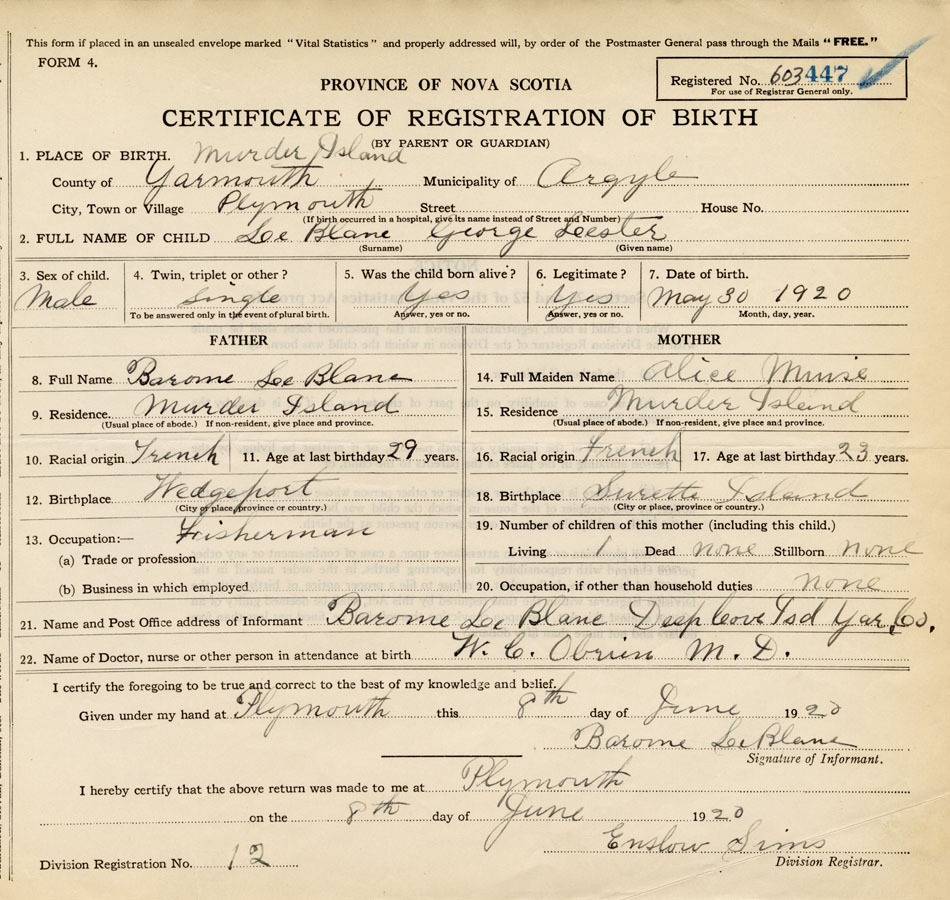 This form if placed in an unsealed envelope marked "Vital Statistics" and properly addressed will, by order of the Postmaster General pass through the Mails "FREE."
FORM 4.
Registered No. 603447
For use of Registrar General only.
PROVINCE OF NOVA SCOTIA
CERTIFICATE OF REGISTRATION OF BIRTH
(BY PARENT OR GUARDIAN)
1. PLACE OF BIRTH. Murder Island
County of Yarmouth Municipality of Argyle
City, Town or Village Plymouth Street House No.
(If birth occurred in a hospital, give its name instead of Street and Number)
2. FULL NAME OF CHILD Le Blanc George Leester
(Surname) (Given name)
3. Sex of child. 4. Twin, triplet or other? 5. Was the child born alive? 6. Legitimate? 7. Date of birth.
Male Single Yes Yes May 30 1920
To be answered only in the event of plural birth. Answer, yes or no. Answer, yes or no. Month, day, year.
FATHER MOTHER
8. Full Name Barome Le Blanc 14. Full Maiden Name Alice Muise
9. Residence. Murder Island 15. Residence Murder Island
(Usual place of abode.) If non-resident, give place and province. (Usual place of abode.) If non-resident, give place and province.
10. Racial origin French 11. Age at last birthday 29 years. 16. Racial origin French 17. Age at last birthday 23 years.
12. Birthplace Wedgeport 18. Birthplace Surette Island
(City or place, province or country.) (City or place, province or country.)
13. Occupation:— Frisherman 19. Number of children of this mother (including this child.)
(a) Trade or profession Living 1 Dead none Stillborn none
(b) Business in which employed 20. Occupation, if other than household duties none
21. Name and Post Office address of Informant Barome Le Blanc Deep Cove Isd Yar. Co.
22. Name of Doctor, nurse or other person in attendance at birth W. C. Obrien M. D.
I certify the foregoing to be true and correct to the best of my knowledge and belief.
Given under my hand at Plymouth this 8th day of June 1920
Barome Le Blanc
Signature of Informant.
I hereby certify that the above return was made to me at Plymouth
on the 8th day of June 1920
Enslow Sims
Division Registration No. 12 Division Registrar.